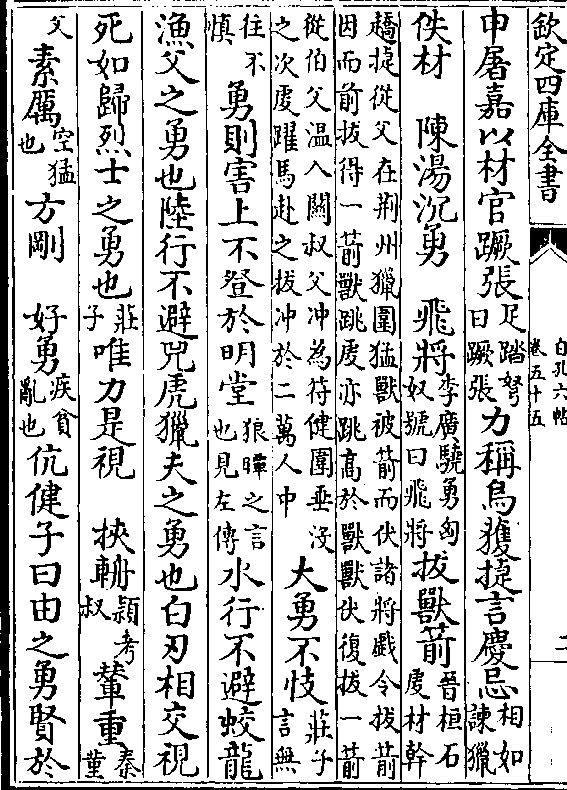 欽定四庫全書
白孔六帖
卷五十五
二
申屠嘉以材官蹶張足踏弩曰蹶張力稱烏獲捷言慶忌相如諫獵
佚材 陳湯沉勇 飛將李廣驍勇匈奴號曰飛將拔獸箭晉桓石䖍材幹
趫捷從父在荆州獵圍猛獸被箭而伏諸將戯令拔箭
因而前拔得一箭獸跳䖍亦跳高於獸獸伏復拔一箭
從伯父温入關叔父冲為符健圍垂沒
之次䖍躍馬赴之拔冲於二萬人中 大勇不忮莊子言無
往不慎 勇則害上不登於明堂狼曋之言也見左傳水行不避蛟龍
漁父之勇也陸行不避兕虎獵夫之勇也白刃相交視
死如歸烈士之勇也莊子唯力是視 挾輈頴考叔輦重秦堇
父 素厲空猛也方剛 好勇疾貧亂也伉健子曰由之勇賢於